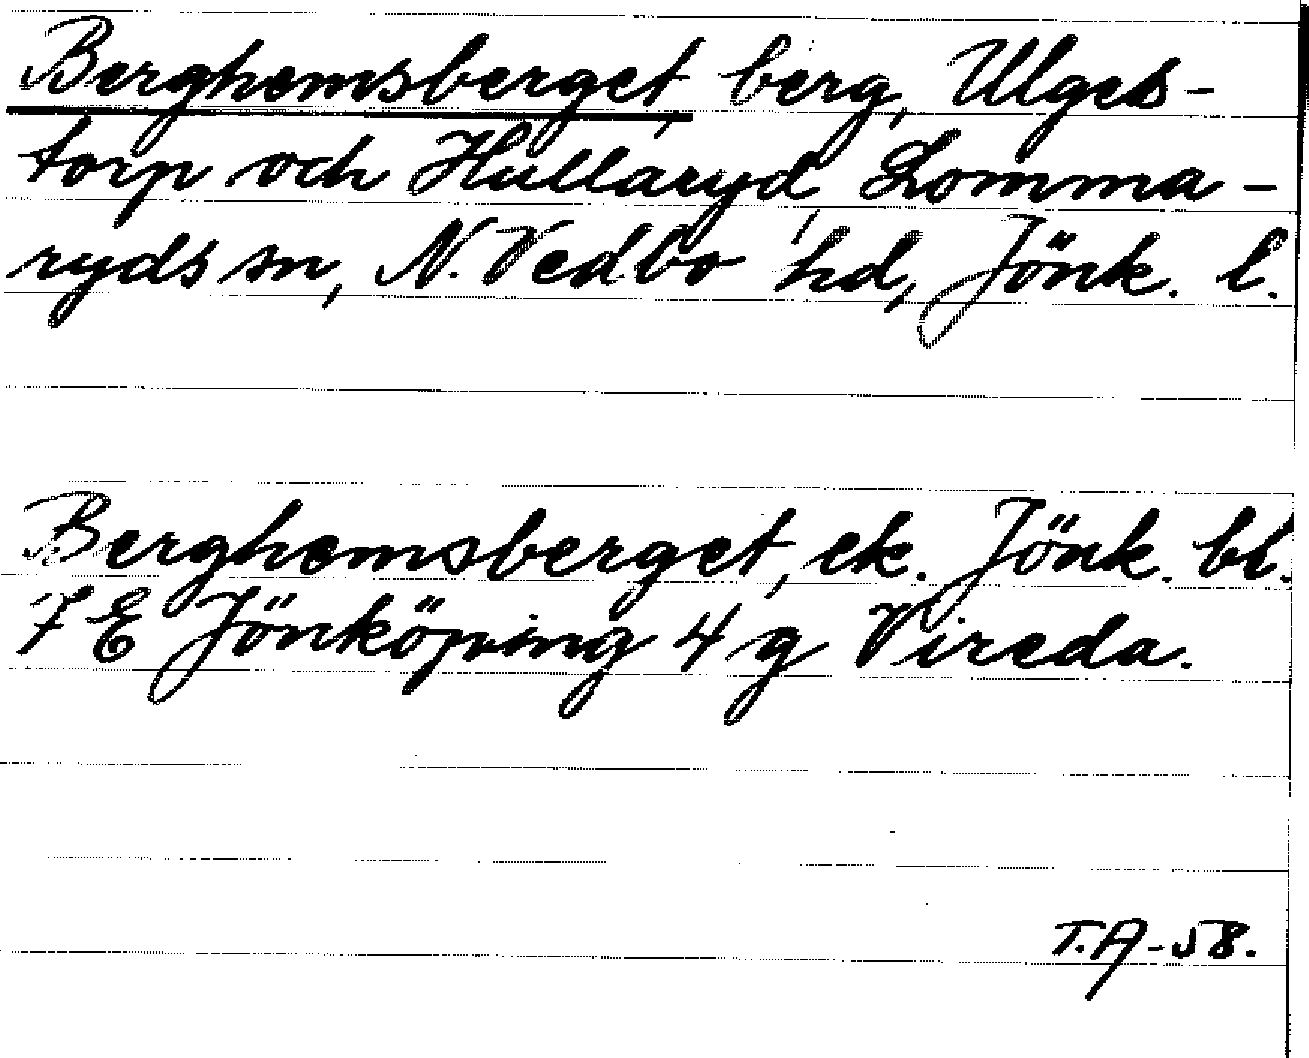 Berghemsberget, berg, Ulgets-
torp och Hullaryd, Lomma-
ryds sn, N. Vedbo hd, Jönk. l.
Berghemsberget, ek. Jönk. bl.
7 E Jönköping 4 g Vireda.
T.A-58.